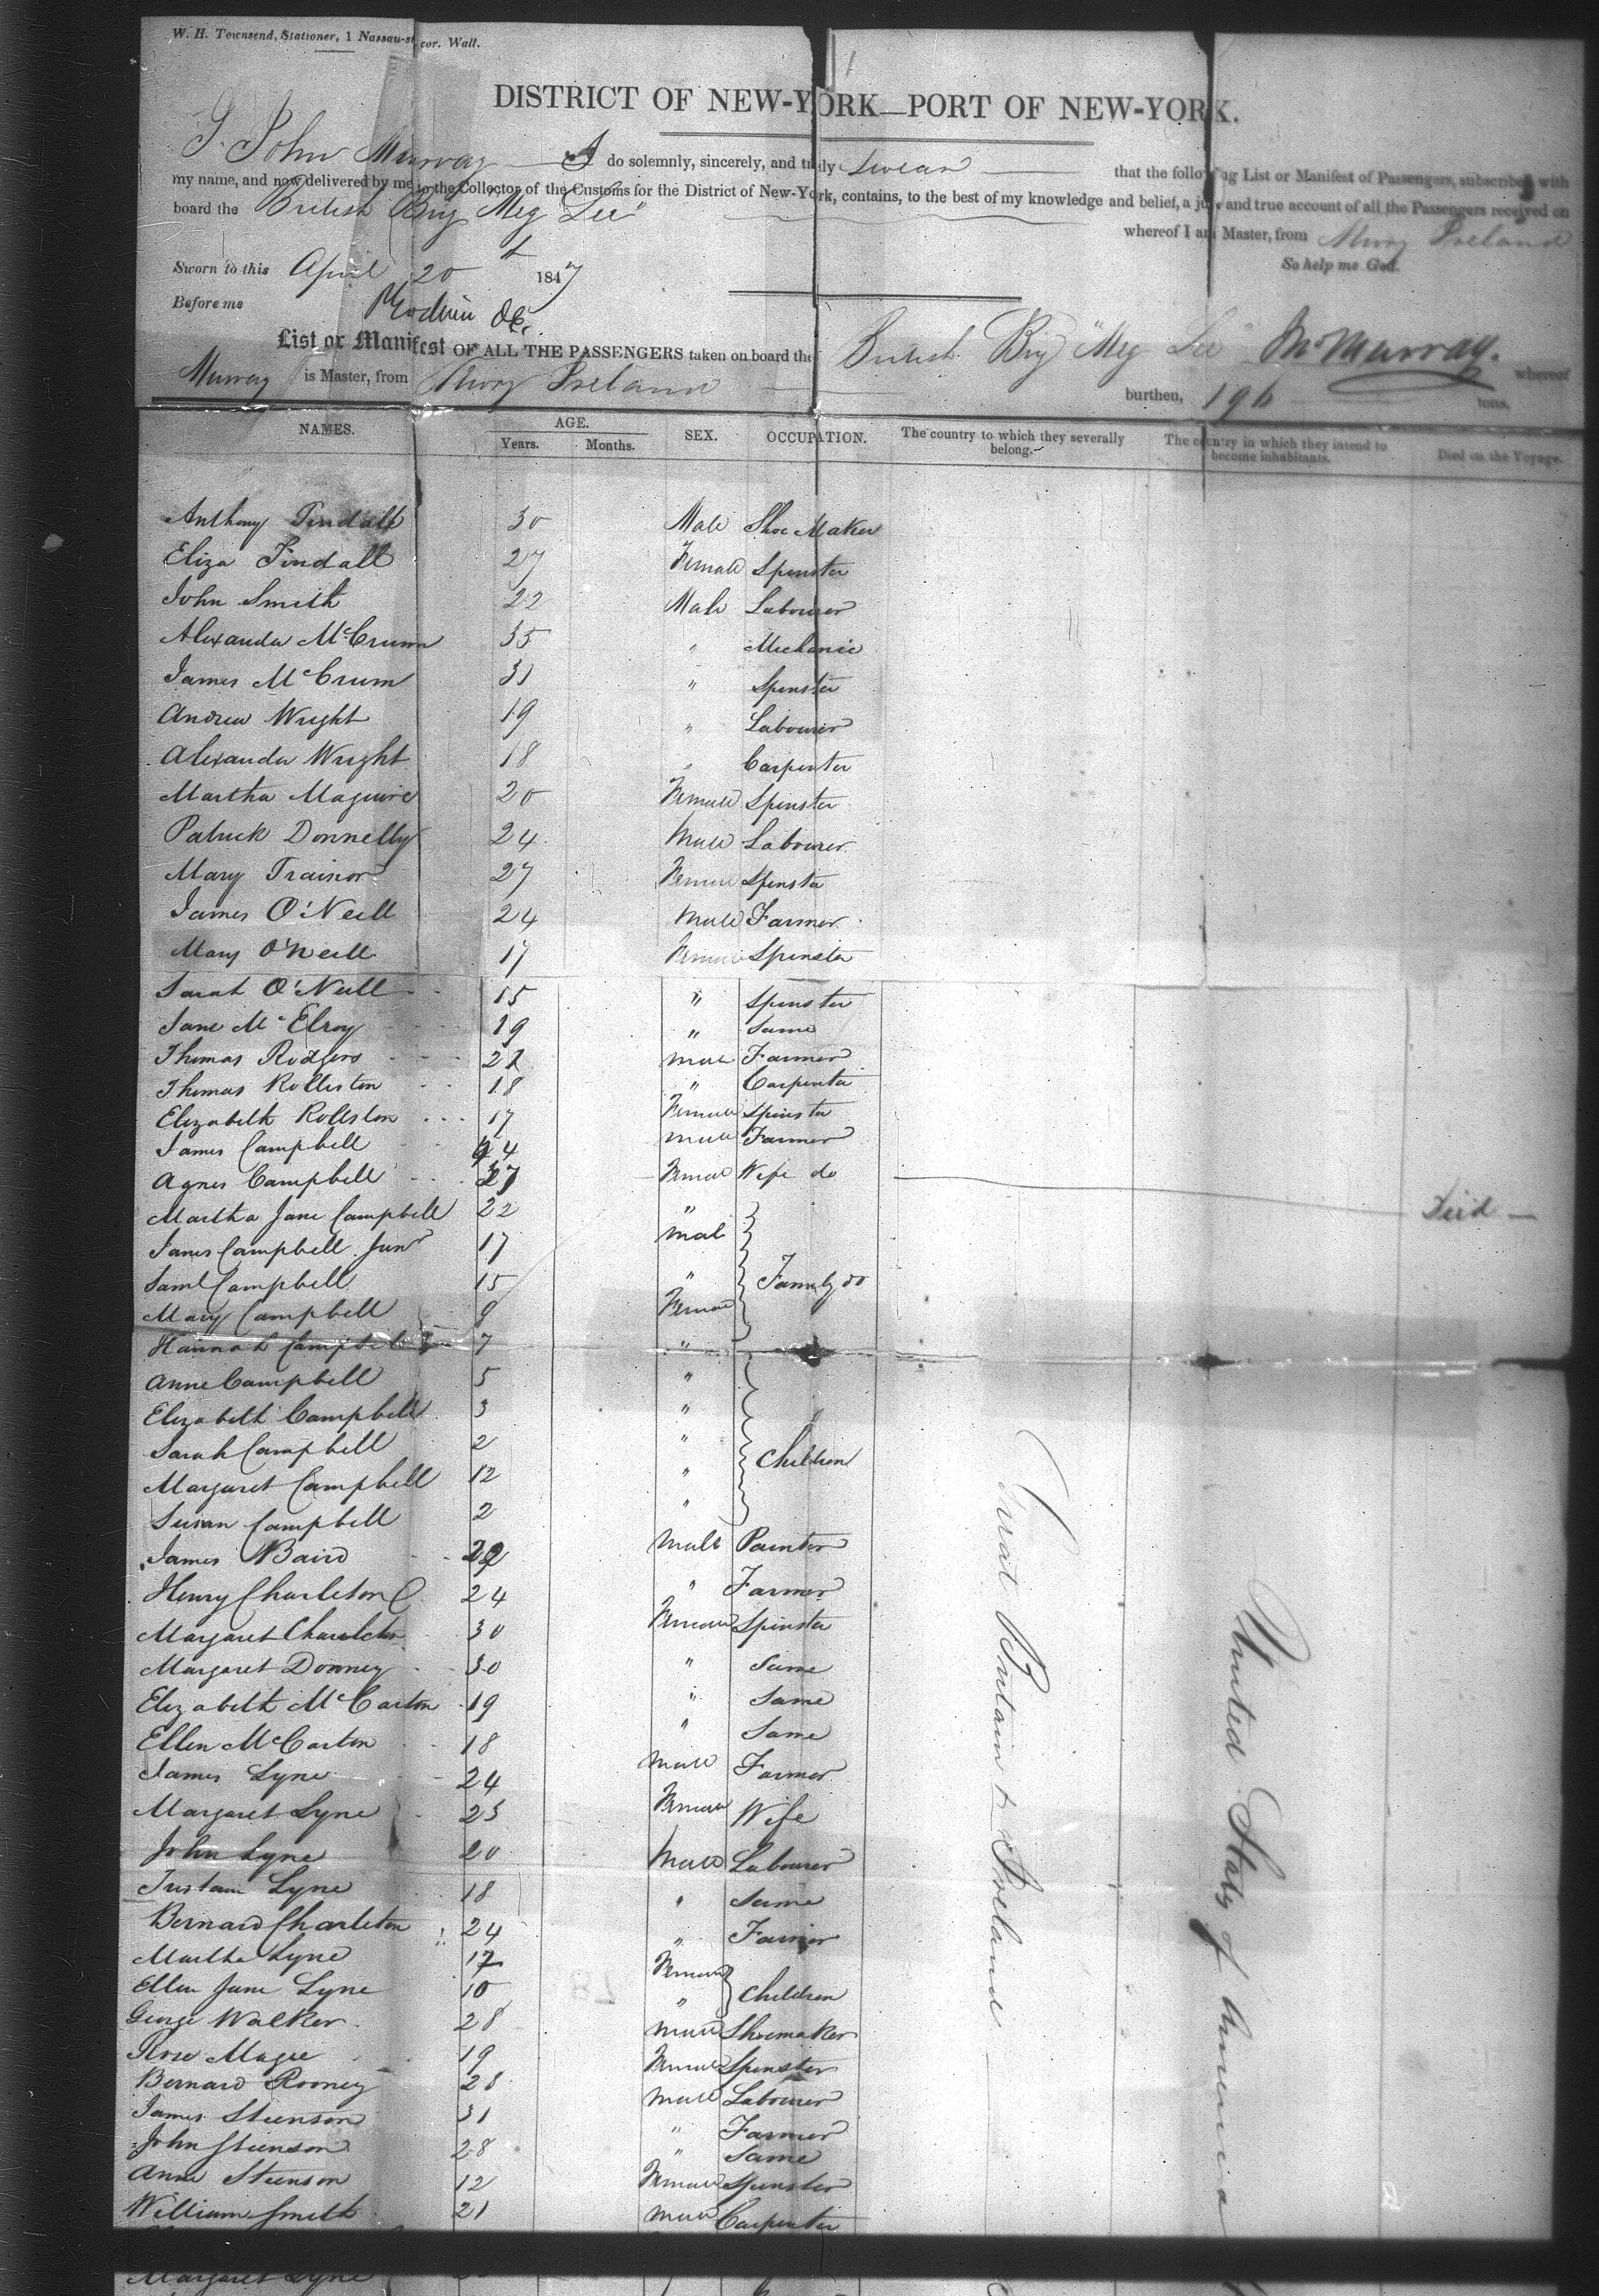 W. H. Townsend, Stationer, 1 Nassau-st cor. Wall.
DISTRICT OF NEW-YORK—PORT OF NEW-YORK.
I. John Murray I do solemnly, sincerely, and truly swear that the following List or Manifest of Passengers, subscribed with
my name, and now delivered by me to the Collector of the Customs for the District of New-York, contains, to the best of my knowledge and belief, a just and true account of all the Passengers received on
board the British Brig "Meg Lee" whereof I am Master, from Newry Ireland
So help me God.
Sworn to this April 20 1847
Before me
List or Manifest OF ALL THE PASSENGERS taken on board the British Brig "Meg Lee" whereof
Murray is Master, from Newry Ireland burthen, 196 tons.
Jn Murray.
NAMES. AGE. Years. Months. SEX. OCCUPATION. The country to which they severally belong. The country in which they intend to become inhabitants. Died on the Voyage.
Anthony Tindall 30 Male Shoe Maker
Eliza Tindall 27 Female Spinster
John Smith 22 Male Labourer
Alexander McCrum 35 " Mechanic
James McCrum 31 " Spinster
Andrew Wright 19 " Labourer
Alexander Wright 18 " Carpenter
Martha Maguire 20 Female Spinster
Patrick Donnelly 24 Male Labourer
Mary Trainor 27 Female Spinster
James O'Neill 24 Male Farmer
Mary O'Neill 17 Female Spinster
Sarah O'Neill 15 " Spinster
Jane McElroy 19 " Same
Thomas Rodgers 21 Male Farmer
Thomas Rolleston 18 " Carpenter
Elizabeth Rollston 17 Female Spinster
James Campbell 44 Male Farmer
Agnes Campbell 37 Female Wife do Died
Martha Jane Campbell 22 "
James Campbell Junr 17 Male
Saml Campbell 15 " Family do
Mary Campbell 9 Female
Hannah Campbell 7 "
Anne Campbell 5 "
Elizabeth Campbell 3 "
Sarah Campbell 2 " Children
Margaret Campbell 12 "
Susan Campbell 2 "
James Baird 22 Male Painter
Henry Charleton 24 " Farmer
Margaret Charleton 30 Female Spinster
Margaret Downey 30 " Same
Elizabeth McCarton 19 " Same
Ellen McCarton 18 " Same
James Lyne 24 Male Farmer
Margaret Lyne 23 Female Wife
John Lyne 20 Male Labourer
Tristam Lyne 18 " Same
Bernard Charleton 24 " Farmer
Martha Lyne 12 Female
Ellen Jane Lyne 10 " Children
George Walker 28 Male Shoemaker
Rose Magee 19 Female Spinster
Bernard Rooney 28 Male Labourer
James Steenson 31 " Farmer
John Steenson 28 " Same
Anne Steenson 12 Female Spinster
William Smith 21 Male Carpenter
Great Britain & Ireland
United States of America
Margaret Lyne